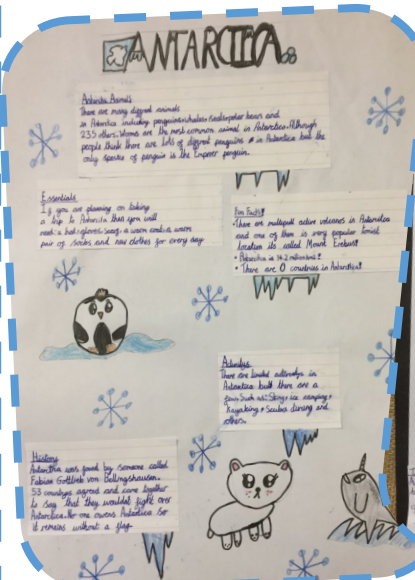 ANTARCTICA
Antarctic Animals
There are many diffrent animals
in Antarctica including penguins, whales, seals, polar bears and
235 others. Worms are the most common animal in Antarctica. Although
people think there are lots of diffrent penguins in Antarctica but the
only species of penguin is the Emperor penguin.
Essentials
If you are planning on taking
a trip to Antarctica then you will
need: a hat, gloves, scarf, a warm coat, a warm
pair of socks and new clothes for every day
Fun Facts!
• There are multipull active volcanoes in Antarctica
and one of them is very popular tourist
location its called Mount Erebus!
• Antarctica is 14.2 million km²!
• There are 0 countries in Antarctica!
Activitys
There are limited activitys in
Antarctica but there are a
few Such as: Skiing, ice camping,
Kayaking, Scuba diving and
others.
History
Antarctica was found by someone called
Fabian Gottlieb von Bellingshausen.
53 countrys agreed and came together
to say that they wouldnt fight over
Antarctica. No one owns Antarctica so
it remains without a flag.